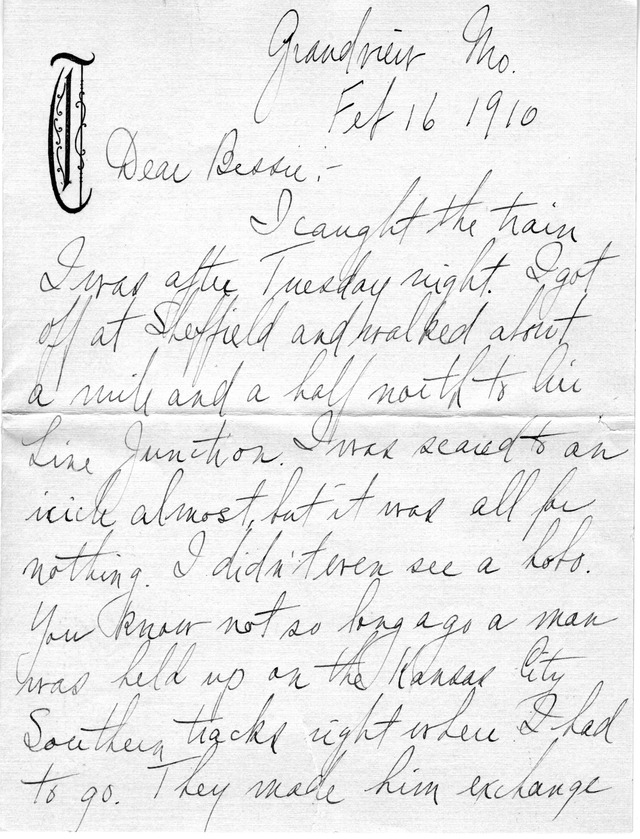 Grandview Mo.
Feb 16 1910
T
Dear Bessie:-
I caught the train
I was after Tuesday night. I got
off at Sheffield and walked about
a mile and a half north to
Line Junction. I was scared to an
icicle almost, but it was all for
nothing. I didn't even see a hobo.
You know not so long ago a man
was held up on the Kansas City
Southern tracks right where I had
to go. They made him exchange